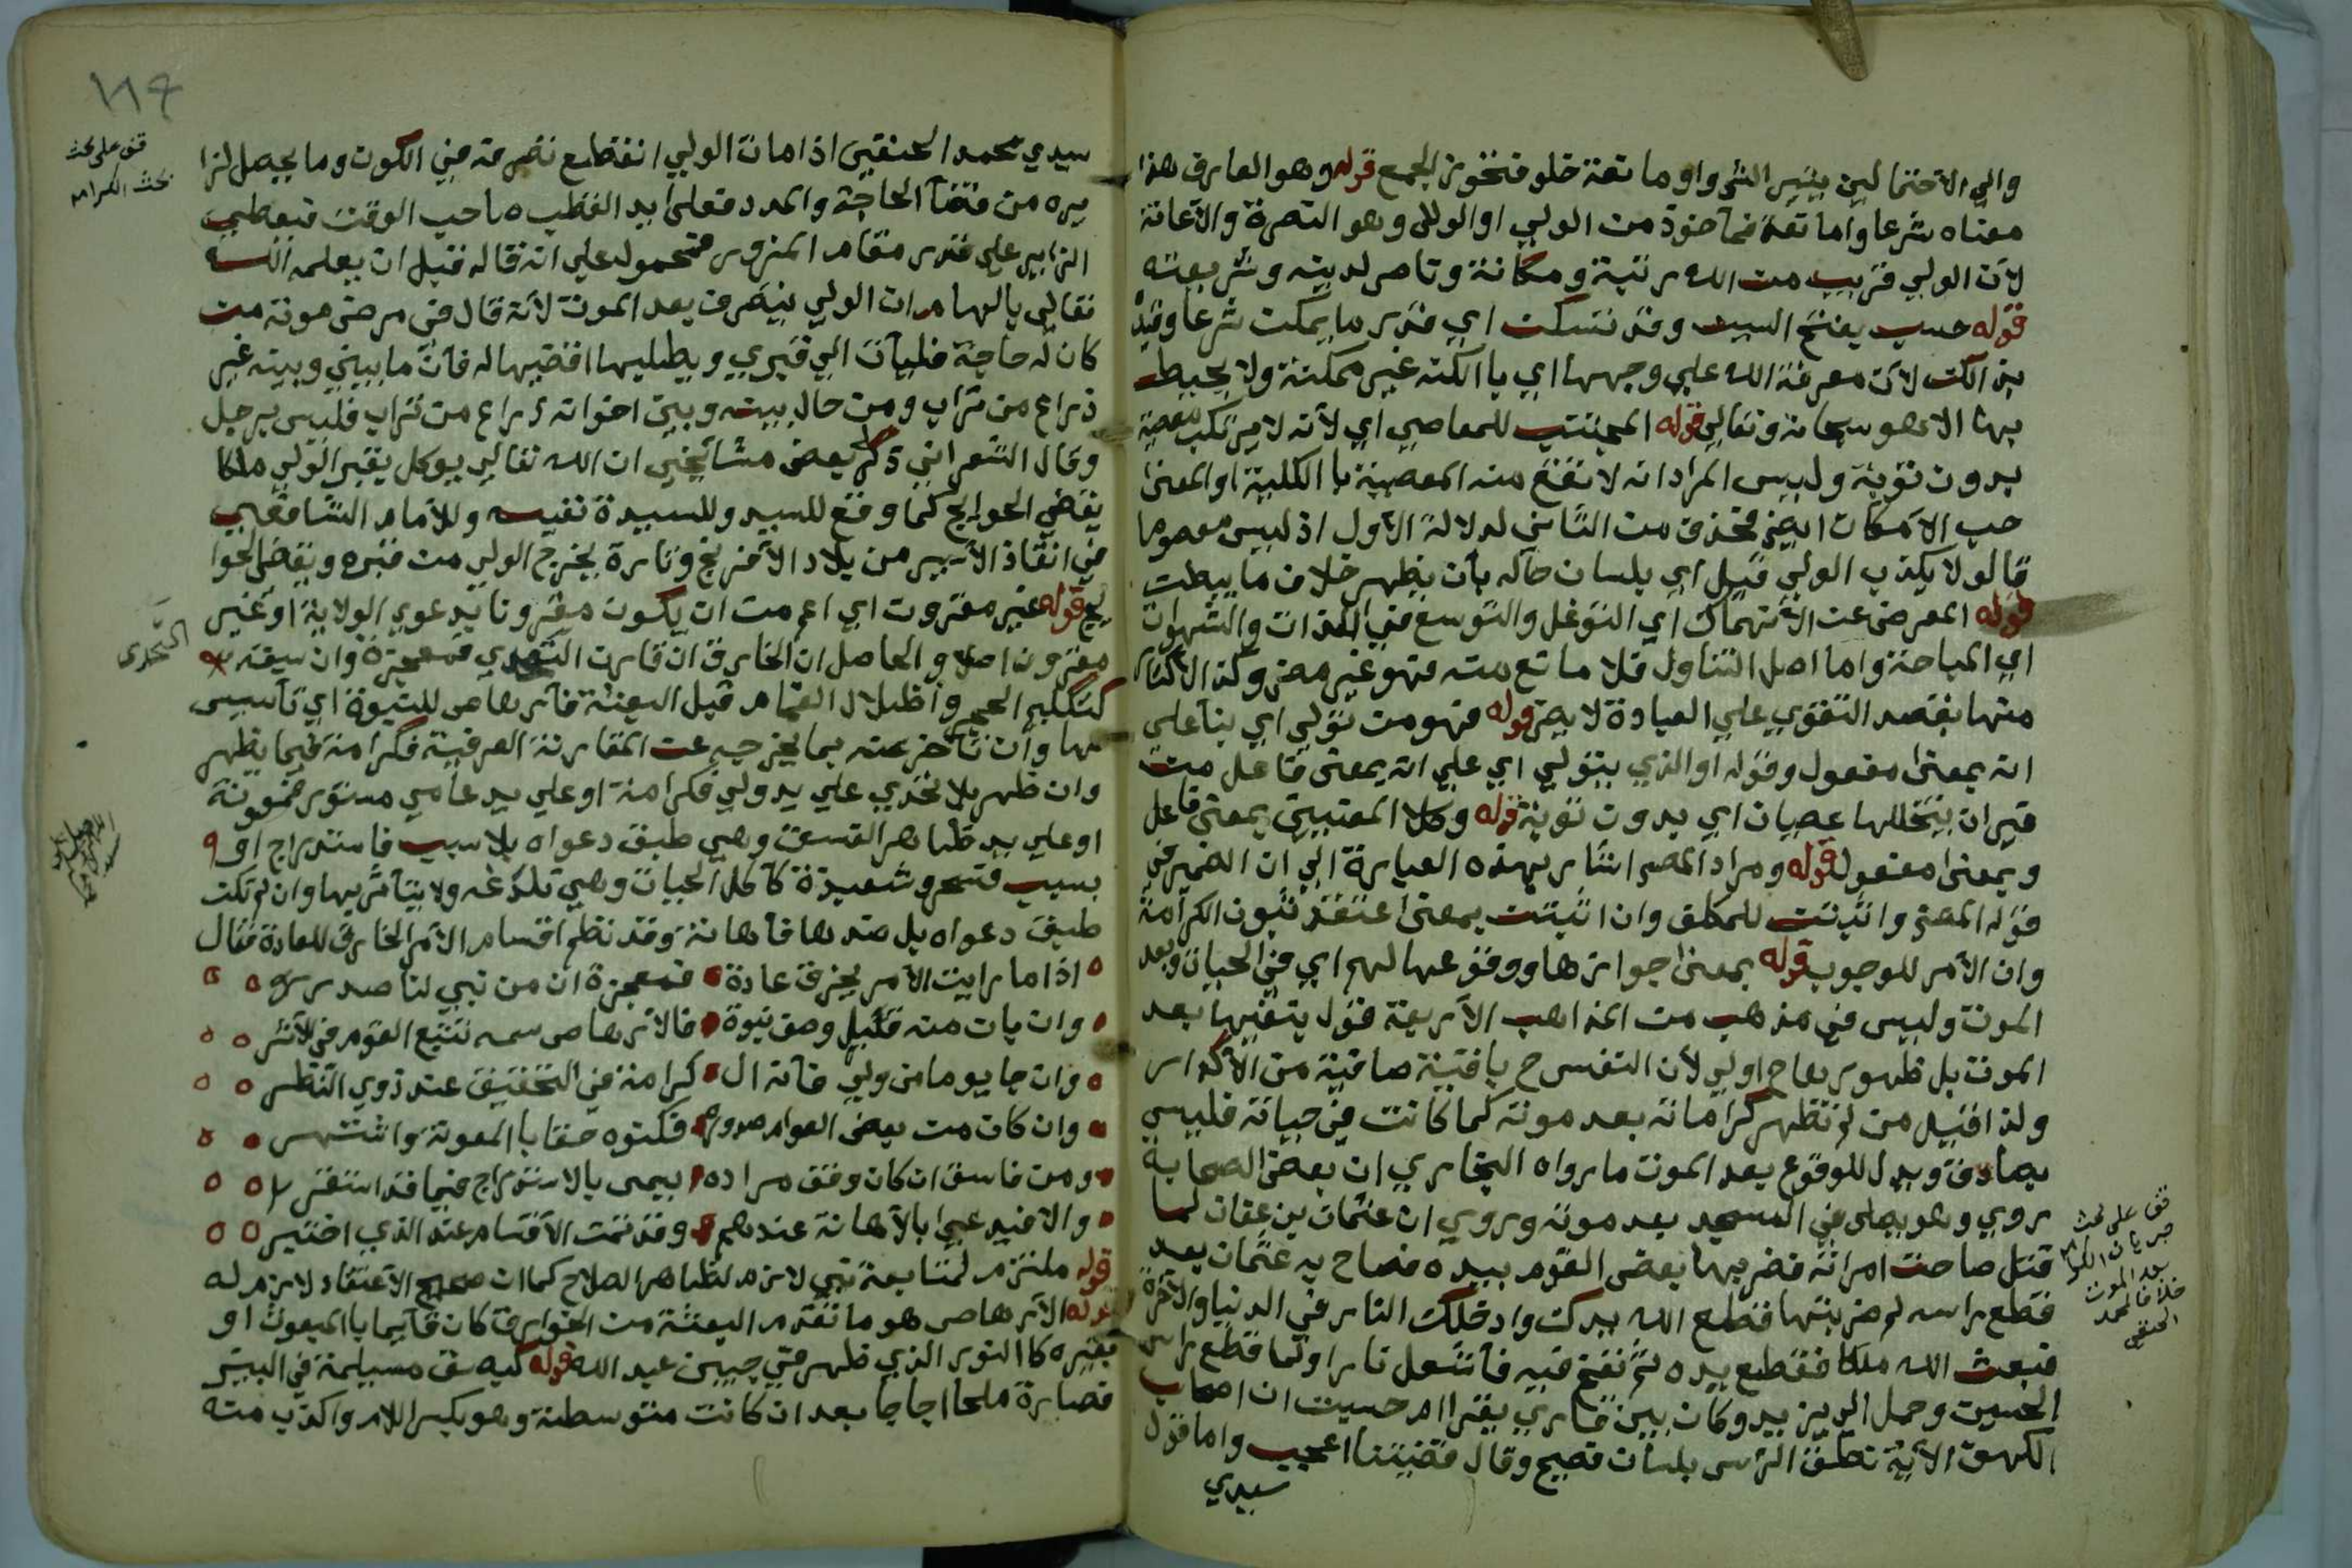 والي الاحتمالين يشير الش واو مانعة خلو فتجوز الجمع قوله وهو العارف هذا
معناه شرعا واما لغة فمأخوذ من الولي او الوللى وهو النصرة والاعانة
لان الولي قريب من الله رتبة ومكانة وناصر لدينه وشريعته
قوله حسب بفتح السين وقد تسكن اي قدر ما يمكن شرعا وقيد
بذالك لان معرفة الله علي وجهها اي باالكنه غير ممكنة ولا يحيط
بها الا هو سبحانه وتعالي قوله المجتنب للمعاصي اي لانه لا يرتكب معصية
بدون توبة وليس المراد انه لا تقع منه المعصية باالكلية او المعنى
حسب الامكان ايض فحذف من الثاني لدلالة الاول اذ ليس معصوما
قالو لا يكذب الولي قيل اي بلسان حاله بأن يظهر خلاف ما يبطن
قوله المعرض عن الانهماك اي التوغل والتوسع في اللذات والشهوات
اي المباحة واما اصل التناول فلا مانع منه فهو غير مضر وكذ الاكثار
منها بقصد التقوي علي العبادة لا يضر قوله فهو من تولي اي بنآ علي
انه بمعنى مفعول وقوله او الذي يتولي اي علي انه بمعنى فاعل من
غير ان يتخللها عصيان اي بدون توبة قوله وكلا المعنيين بمعنى فاعل
وبمعنى مفعول قوله ومراد المص اشار بهذه العبارة الي ان الضمير في
قوله المص واثبتت للمكلف وان اثبتت بمعنى اعتقد ثبوت الكرامة
وان الأمر للوجوب قوله بمعنى جوازها ووقوعها لهم اي في الحياة وبعد
الموت وليس في مذهب من المذاهب الاربعة قول بنفيها بعد
الموت بل ظهورها ح اولي لأن النفس ح باقية صافية من الأكدار
ولذا قيل من لم تظهر كراماته بعد موته كما كانت في حياته فليس
بصادق ويدل للوقوع بعد الموت ما رواه البخاري ان بعض الصحابة
روي وهو يصلى في المسجد بعد موته وروي ان عثمان بن عفان لما
قتل صاحت امراته فضربها بعض القوم بيده فصاح به عثمان بعد
قطع راسه لم ضربتها قطع الله يدك وادخلك النار في الدنيا والاخرة
فبعث الله ملكا فقطع يده ثم نفخ فيه فأشتعل نارا ولما قطع راس
الحسين وحمل الي يزيد وكان بين قاري يقرا ام حسبت ان اصحاب
الكهف الاية نطق الراس بلسان فصيح وقال قضيتنا اعجب واما قول
سيدي
قف على بحث
جريان الكرامة
بعد الموت
خلافا لمحمد
الحنفي
١١٤
قف على بحث
بحث الكرامه
سيدي محمد الحنفي اذا مات الولي انقطع تصرفه في الكون وما يحصل لزا
يره من قضآ الحاجة والمدد فعلى يد القطب صاحب الوقت فيعطي
الزاير علي قدر مقام المزور فمحمول علي انه قاله قبل ان يعلمه الله
تعالي بالهام ان الولي يتصرف بعد الموت لأنه قال في مرض موته من
كان له حاجة فليأت الي قبري ويطلبها اقضيها له فأن ما بيني وبينه غير
ذراع من تراب ومن حال بينه وبين اخوانه ذراع من تراب فليس برجل
وقال الشعراني ذكر لي بعض مشايخي ان الله تعالي يوكل بقبر الولي ملكا
يقضي الحوايج كما وقع للسيد وللسيدة نفيسه وللأمام الشافعي
في انقاذ الأسير من بلاد الأفرنج وتارة يخرج الولي من قبره ويقضي الحوا
يج قوله غير مقترون اي اعم من ان يكون مقترونا بدعوي الولاية او غير
مقترون اصلا والحاصل ان الخارق ان قارن التحدي فمعجزة وان سبقه
التحدى
كتكليم الحجر واظلال الغمام قبل البعثة فأرهاص للنبوة اي تأسيس
لها وأن تأخر عنه بما يخرجه عن المقارنة العرفية فكرامة فيما يظهر
وان ظهر بلا تحدي علي يد ولي فكرامة او علي يد عامي مستور فمعونة
او علي يد ظاهر الفسق وهي طبق دعواه بلا سبب فاستدراج او
بسبب فسحر وشعبذة كأكل الحيات وهي تلدغه ولا يتأثر بها وان لم تكن
طبق دعواه بل ضدها فأهانة وقد نظم اقسام الامر الخارق للعادة فقال
اذا ما رايت الأمر يخرق عادة فمعجزة ان من نبي لنا صدر
وان بان منه قبل وصف نبوة فالارهاص سمه تتبع القوم في الأثر
وان جا يوما من ولي فأنه ال كرامة في التحقيق عند ذوي النظر
وان كان من بعض العوام صدوره فكنوه حقا باالمعونة واشتهر
ومن فاسق ان كان وفق مراده يسمى بالاستدراج فيما قد استقر
والا فيدعي بالأهانة عندهم وقد تمت الأقسام عند الذي اختبر
قوله ملتزم لمتابعة نبي لازم لظاهر الصلاح كما ان صحيح الاعتقاد لازم له
قوله الأرهاص هو ما تقدم البعثة من الخوارق كان قايما باالمبعوث او
بغيره كا النور الذي ظهر في جبين عبد الله قوله كبصق مسيلمة في البير
فصارة ملحا اجاجا بعد ان كانت متوسطة وهو بكسر اللام واكذب منه